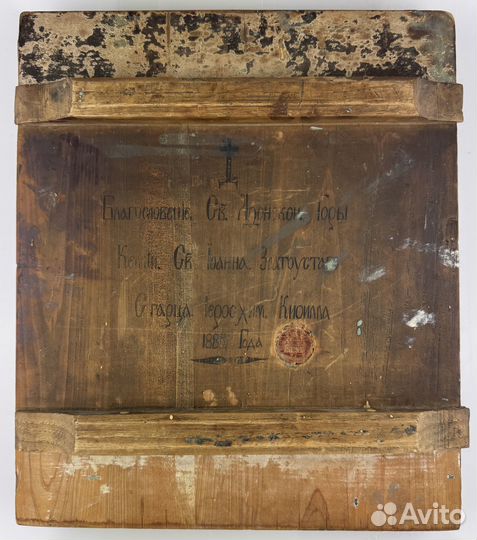 Благословенie. Св. Аѳонскои. Горы
Келiи. Св. Iоанна. Златоустаго
Старца. Iеросхим. Кирилла
Года
Avito